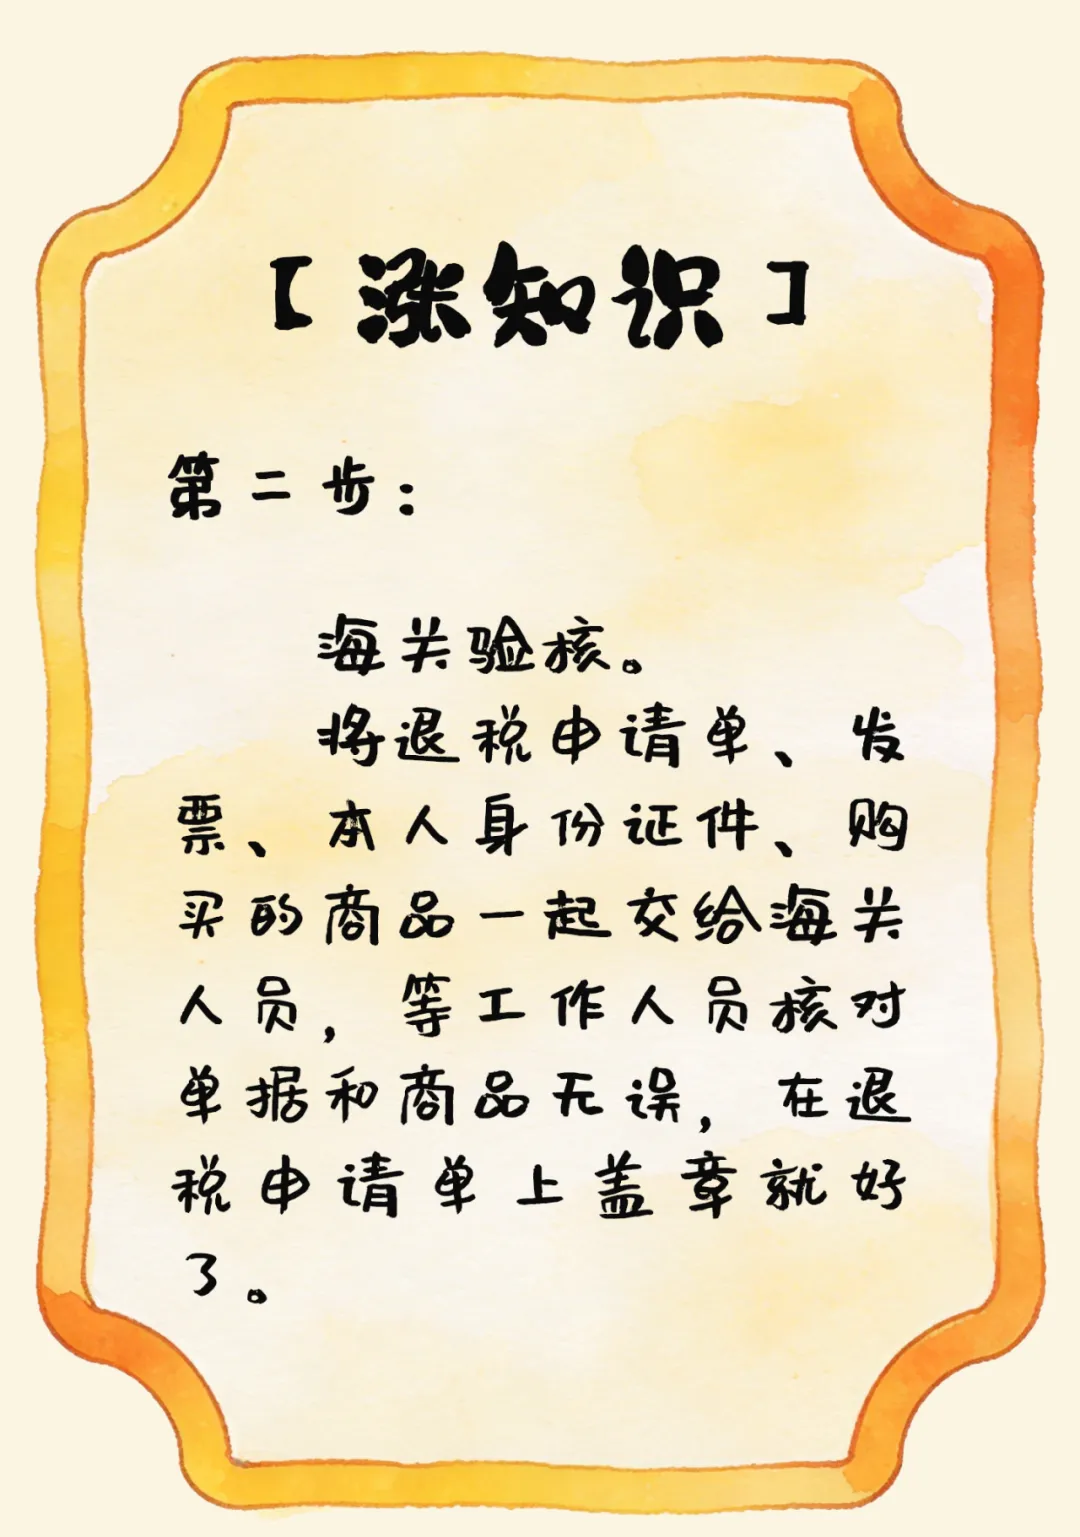 【涨知识】
第二步：
海关验核。
将退税申请单、发
票、本人身份证件、购
买的商品一起交给海关
人员，等工作人员核对
单据和商品无误，在退
税申请单上盖章就好
了。